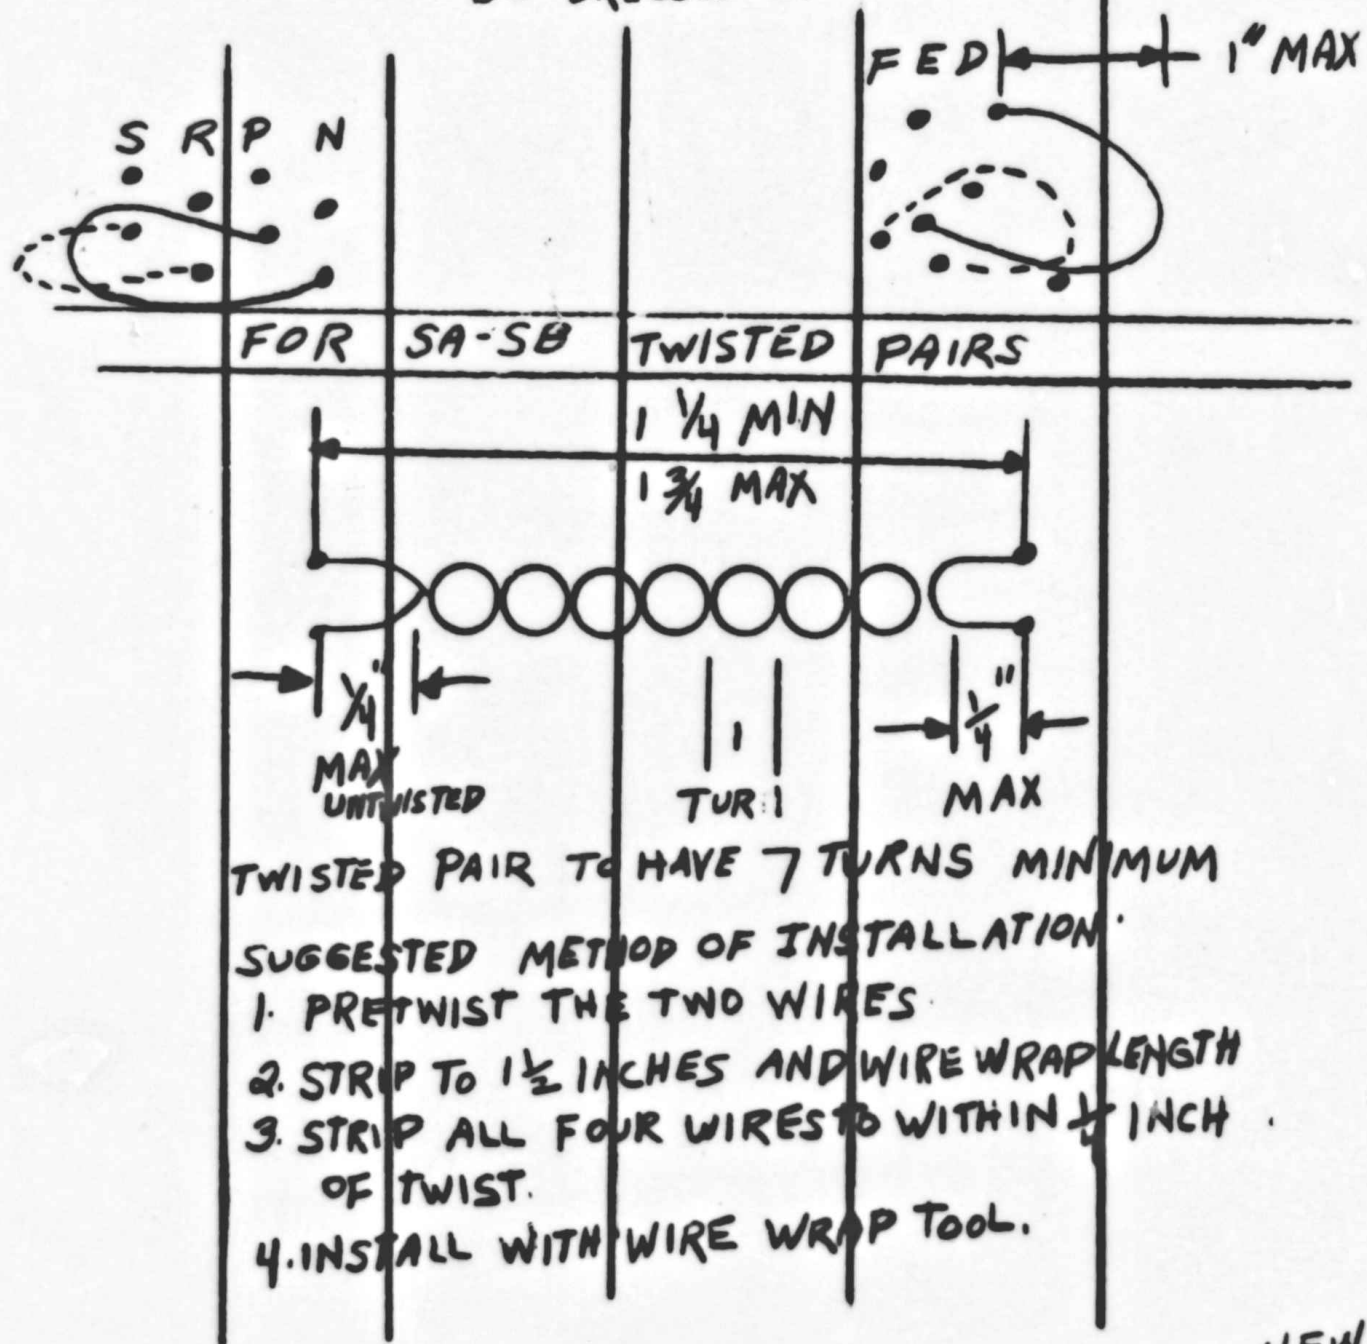 F E D 1" MAX
S R P N
FOR SA-SB TWISTED PAIRS
1 1/4 MIN
1 3/4 MAX
1/4" 1/4"
1
MAX MAX
UNTWISTED
TWISTED PAIR TO HAVE 7 TURNS MINIMUM
SUGGESTED METHOD OF INSTALLATION
1. PRETWIST THE TWO WIRES.
2. STRIP TO 1 1/2 INCHES AND WIRE WRAP LENGTH
3. STRIP ALL FOUR WIRES TO WITHIN 1/4 INCH.
OF TWIST.
4. INSTALL WITH WIRE WRAP TOOL.